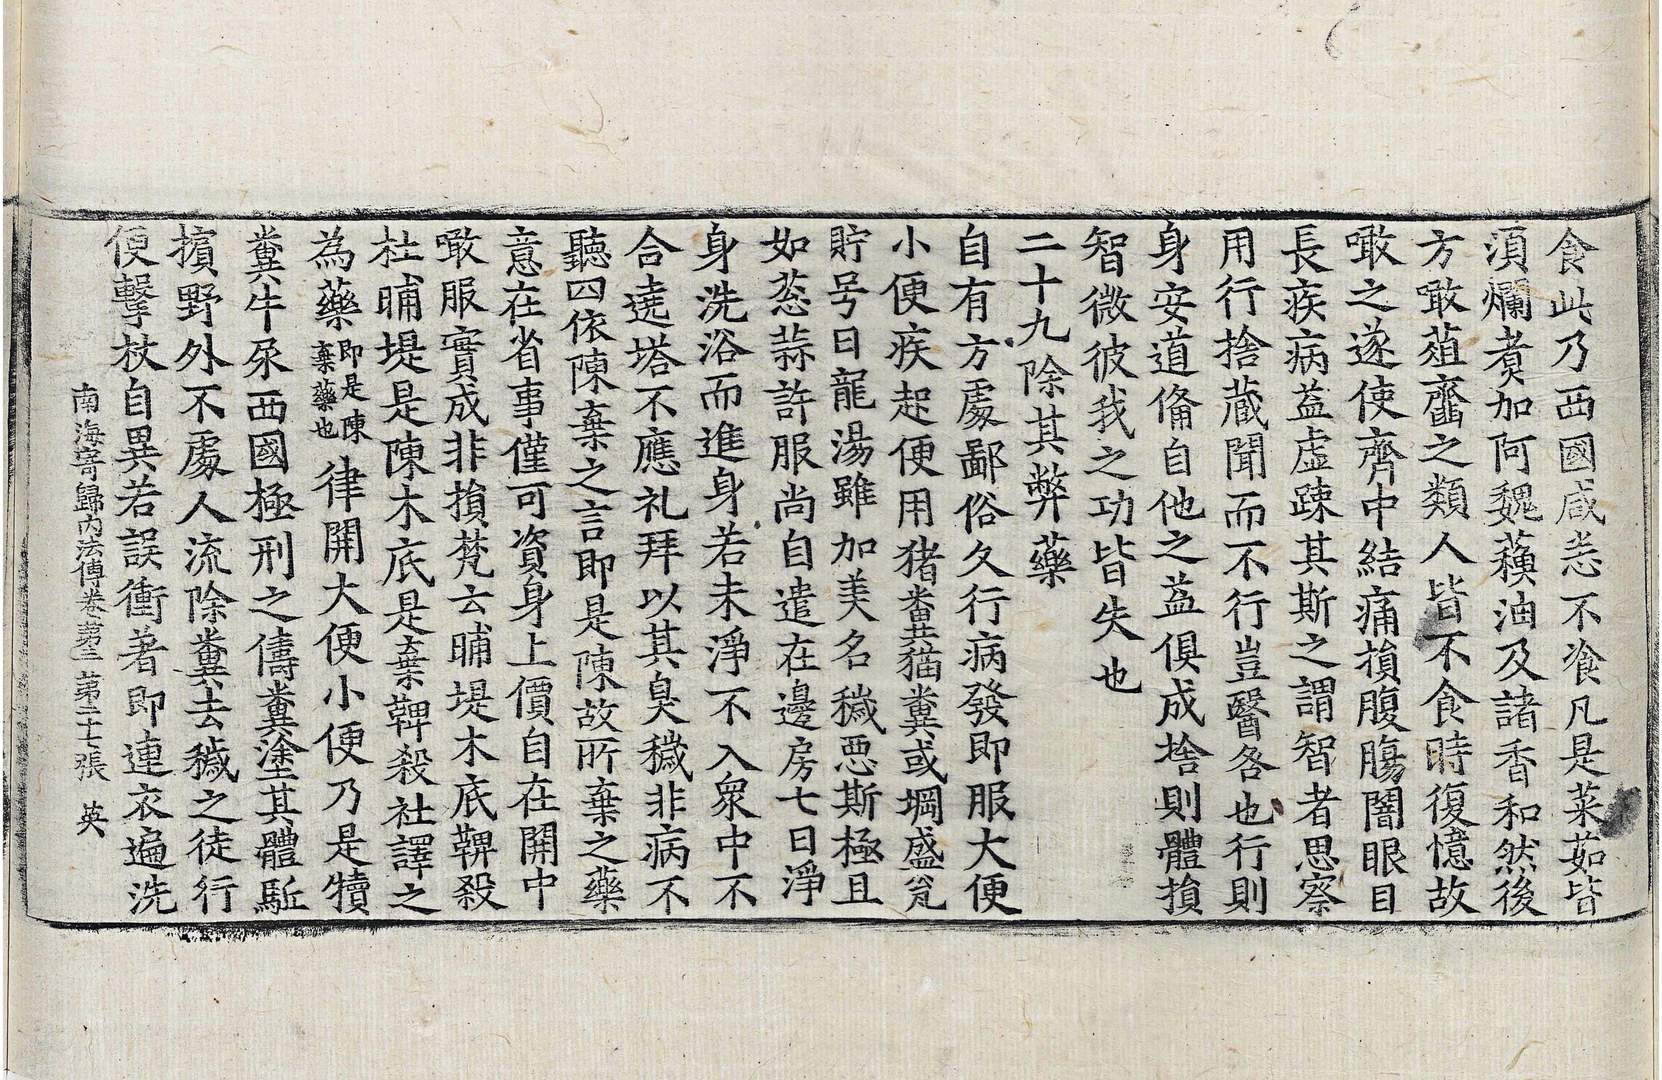 食此乃西國咸悉不飡凡是菜茹皆
湏爛煑加阿魏蘓油及諸香和然後
方噉葅齏之類人皆不食時復憶故
噉之遂使齊中結痛損腹膓闇眼目
長疾病益虛踈其斯之謂智者思察
用行捨藏聞而不行豈醫咎也行則
身安道俻自他之益俱成捨則體損
智微彼我之功皆失也
二十九除其弊藥
自有方處鄙俗久行病發即服大便
小便疾起便用猪糞猫糞或堈盛瓮
貯号曰龍湯雖加美名穢惡斯極且
如葱蒜許服尚自遣在邊房七日淨
身洗浴而進身若未淨不入衆中不
合遶塔不應礼拜以其臭穢非病不
聽四依陳棄之言即是陳故所棄之藥
意在省事僅可資身上價自在開中
噉服實成非損梵云晡堤木底鞞殺
社晡堤是陳木底是棄鞞殺社譯之
為藥即是陳棄藥也律開大便小便乃是犢
糞牛尿西國極刑之儔糞塗其體駈
擯野外不處人流除糞去穢之徒行
便擊杖自異若誤衝著即連衣遍洗
南海寄歸內法傳卷苐三 苐二十七張 英